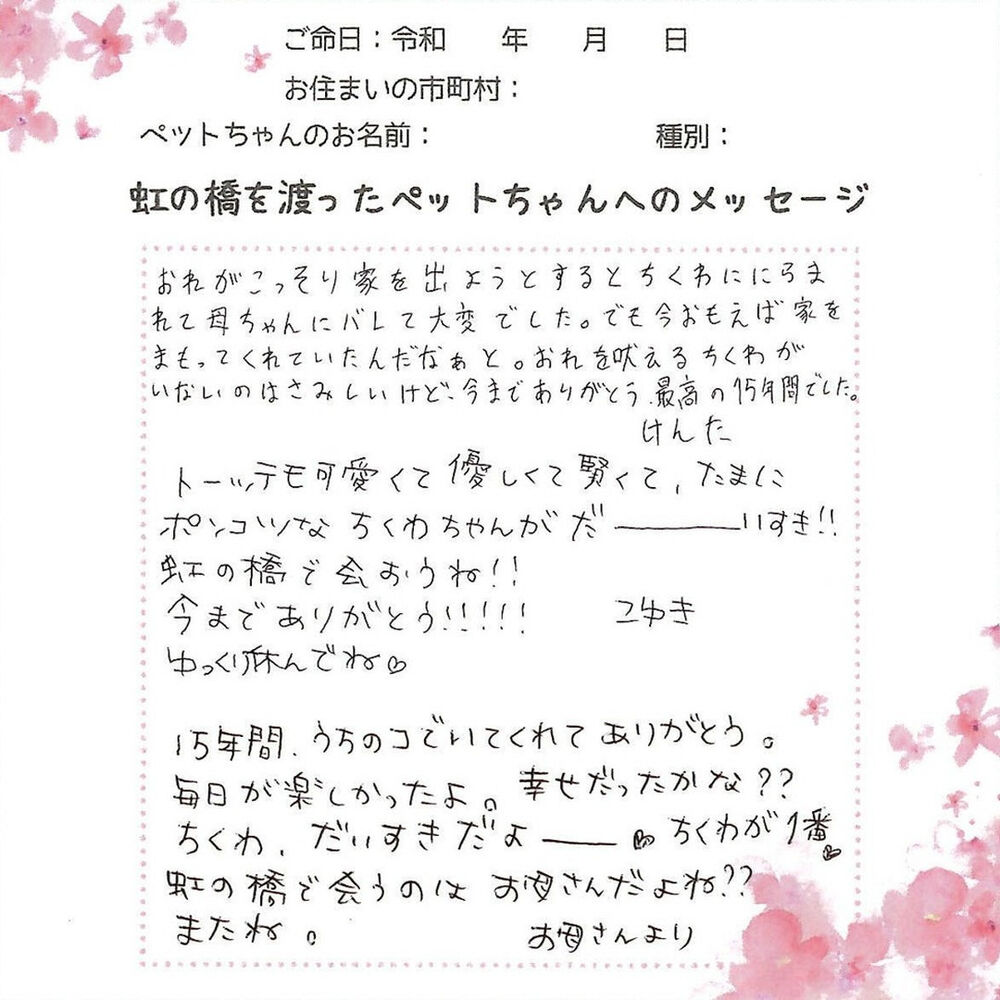 ご命日：令和　　年　　月　　日
お住まいの市町村：
ペットちゃんのお名前：　　　　　　　　種別：
虹の橋を渡ったペットちゃんへのメッセージ
おれがこっそり家を出ようとするとちくわににらま
れて母ちゃんにバレて大変でした。でも今おもえば家を
まもってくれていたんだなぁと。おれを吠えるちくわが
いないのはさみしいけど、今までありがとう、最高の15年間でした。
けんた
トーッテモ可愛くて優しくて賢くて、たまに
ポンコツなちくわちゃんがだ―――いすき!!
虹の橋で会おうね!!
今までありがとう!!!!!　　こゆき
ゆっくり休んでね♡
15年間、うちのコでいてくれてありがとう。
毎日が楽しかったよ。幸せだったかな??
ちくわ、だいすきだよ――♡ ちくわが1番♡
虹の橋で会うのはお母さんだよね??
またね。　　お母さんより